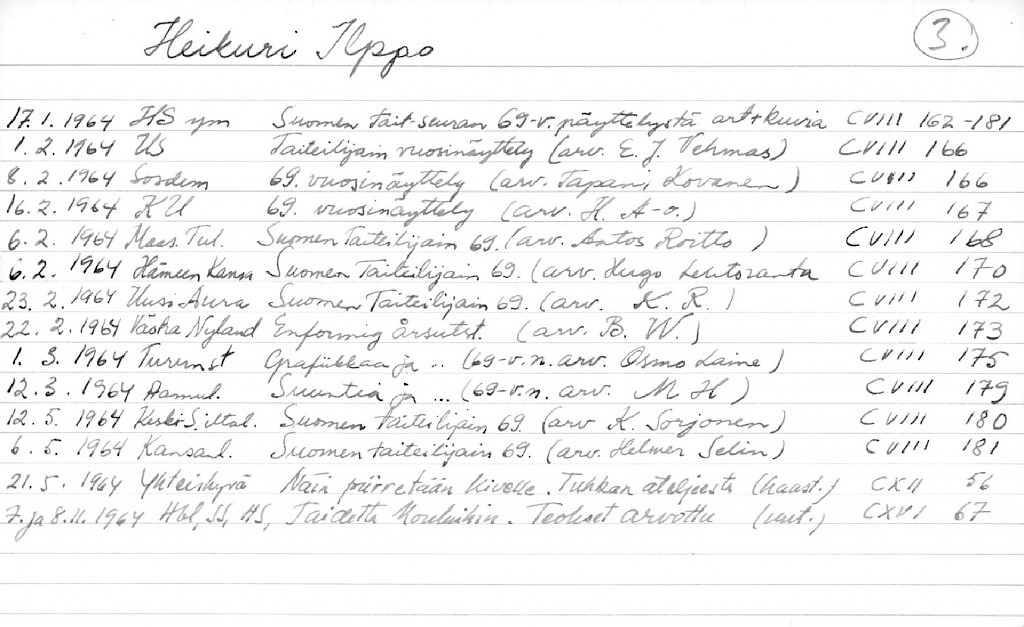 Heikuri Ilppo 3.
17.1.1964 HS ym Suomen tait.seuran 69-v.näyttelystä art+kuvia CVIII 162-181
1.2.1964 US Taiteilijain vuosinäyttely (arv. E. J. Vehmas) CVIII 166
8.2.1964 Sosdem 69. vuosinäyttely (arv. Tapani Kovanen) CVIII 166
16.2.1964 KU 69. vuosinäyttely (arv. H. A-o.) CVIII 167
6.2.1964 Maas. Tul. Suomen Taiteilijain 69. (arv. Antos Roitto) CVIII 168
6.2.1964 Hämeen Kansa Suomen Taiteilijain 69. (arv. Hugo Lehtoranta CVIII 170
23.2.1964 Uusi Aura Suomen Taiteilijain 69. (arv. K. R.) CVIII 172
22.2.1964 Västra Nyland Enformig årsutst. (arv. B. W.) CVIII 173
1.3.1964 Turunst Grafiikkaa ja .. (69-v.n. arv. Osmo Laine) CVIII 175
12.3.1964 Aamul. Suuntia ja ... (69-v.n. arv. M H) CVIII 179
12.5.1964 Keski-S. iltal. Suomen Taiteilijain 69. (arv K. Sorjonen) CVIII 180
6.5.1964 Kansanl. Suomen taiteilijain 69. (arv. Helmer Selin) CVIII 181
21.5.1964 Yhteishyvä Näin piirretään kivelle. Tuhkan ateljeesta (haast.) CXII 56
7. ja 8.11.1964 Hbl, SS, HS, Taidetta Kouluihin. Teokset arvottu (uut.) CXVI 67